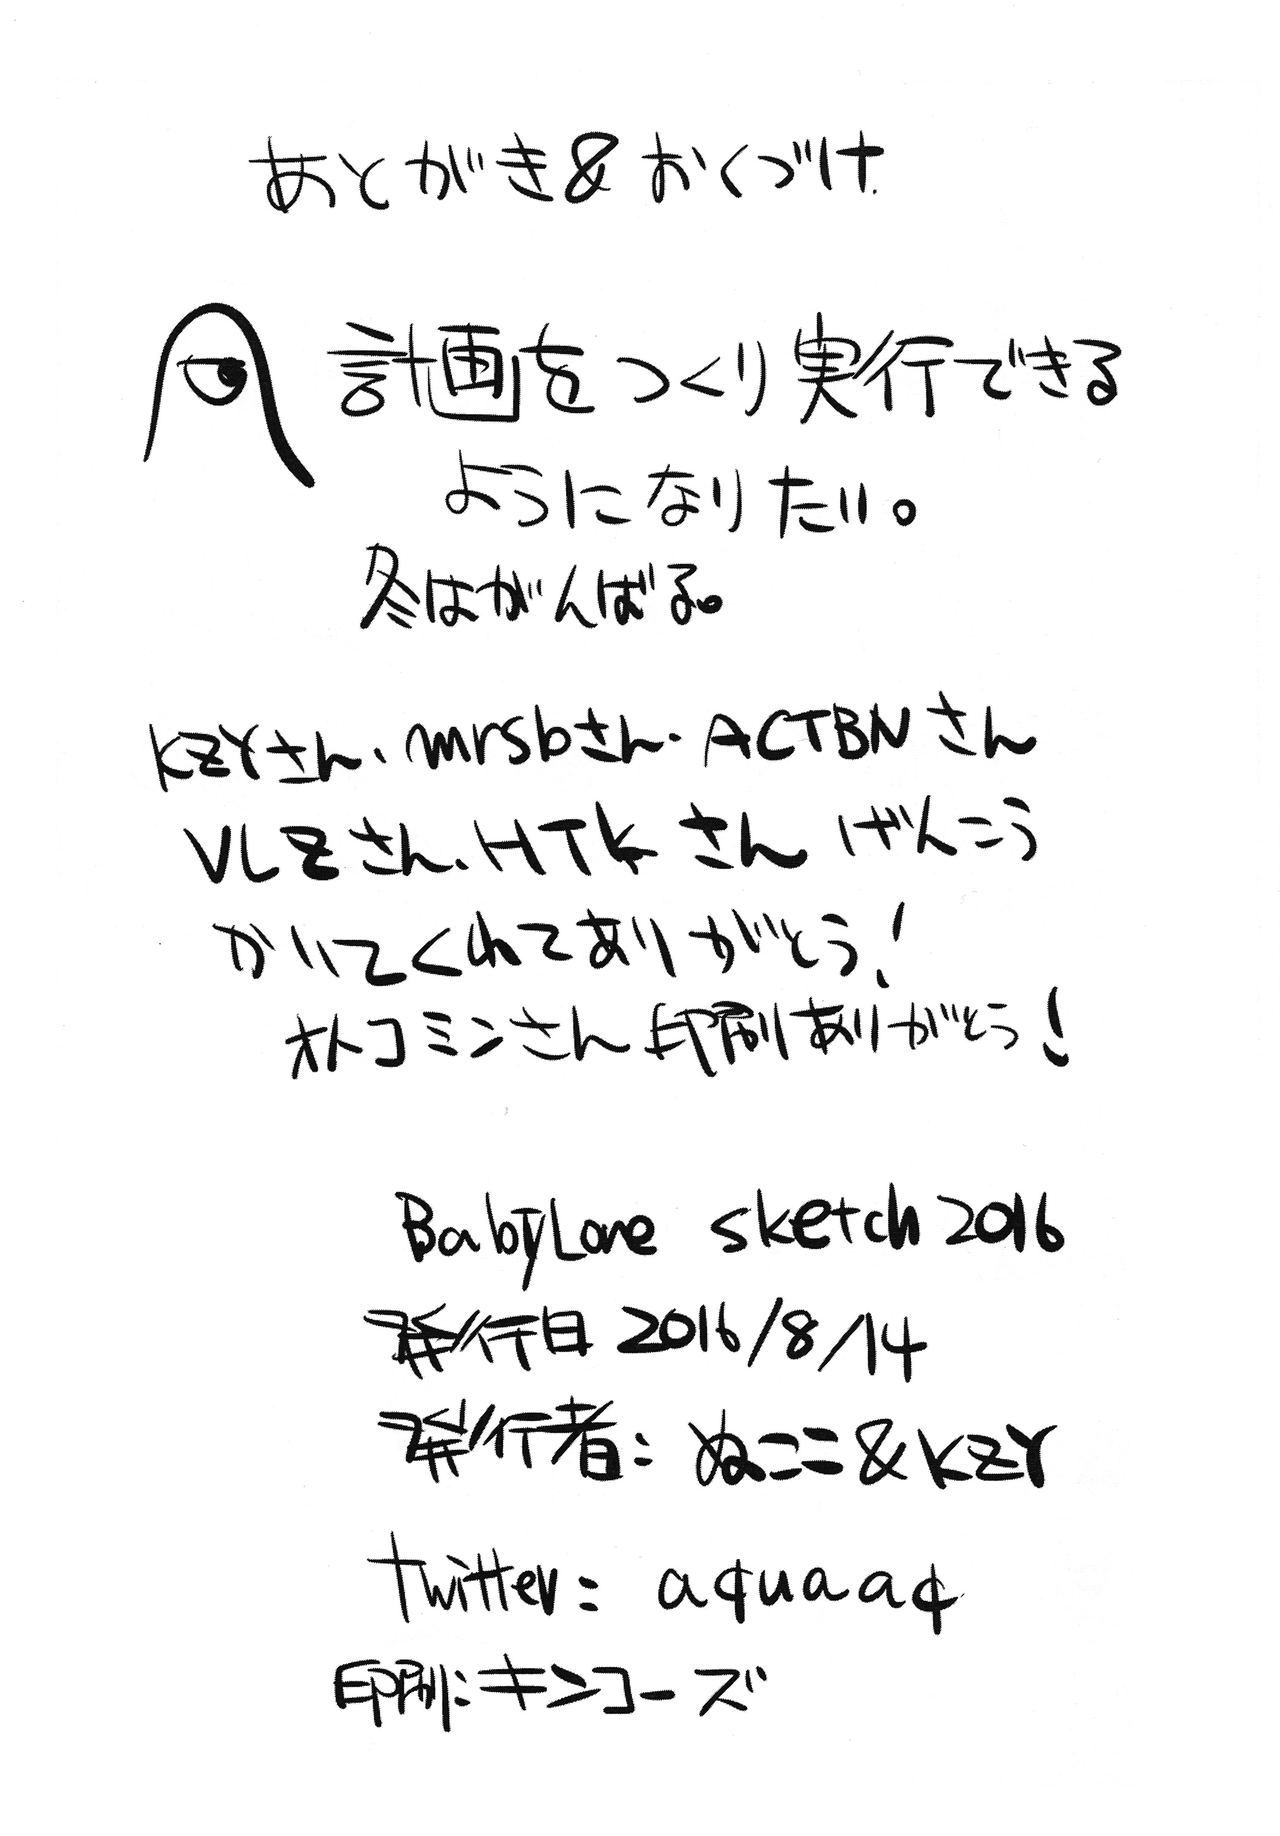 あとがき&おくづけ
計画をつくり実行できる
ようになりたい。
冬はがんばる。
KZYさん、mrsbさん、ACTBNさん
VLZさん、HTKさん げんこう
かいてくれてありがとう!
オトコミンさん印刷ありがとう!
BabyLone sketch 2016
発行日 2016/8/14
発行者: ぬここ&KZY
twitter: aquaaq
印刷: キンコーズ